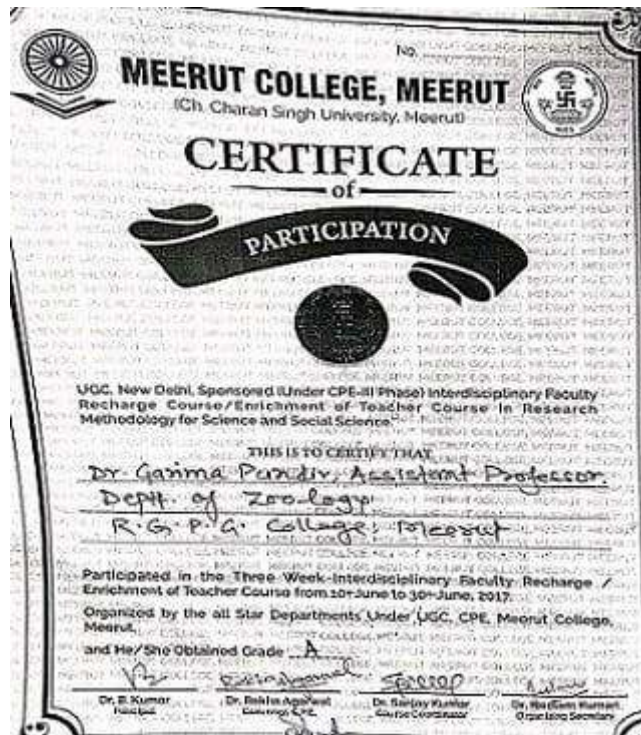 No.
MEERUT COLLEGE, MEERUT
(Ch. Charan Singh University, Meerut)
CERTIFICATE
of
PARTICIPATION
UGC, New Delhi, Sponsored (Under CPE-III Phase) Interdisciplinary Faculty
Recharge Course/Enrichment of Teacher Course in Research
Methodology for Science and Social Science.
THIS IS TO CERTIFY THAT
Dr Garima Pundir, Assistant Professor.
Deptt. of Zoology
R.G.P.G. College, Meerut
Participated in the Three Week-Interdisciplinary Faculty Recharge /
Enrichment of Teacher Course from 10th June to 30th June, 2017.
Organized by the all Star Departments Under UGC, CPE, Meerut College,
Meerut.
and He/She Obtained Grade A
Dr. B. Kumar
Principal
Dr. Rekha Agarwal
Dr. Sanjay Kumar
Course Coordinator
Kumari
Organizing Secretary